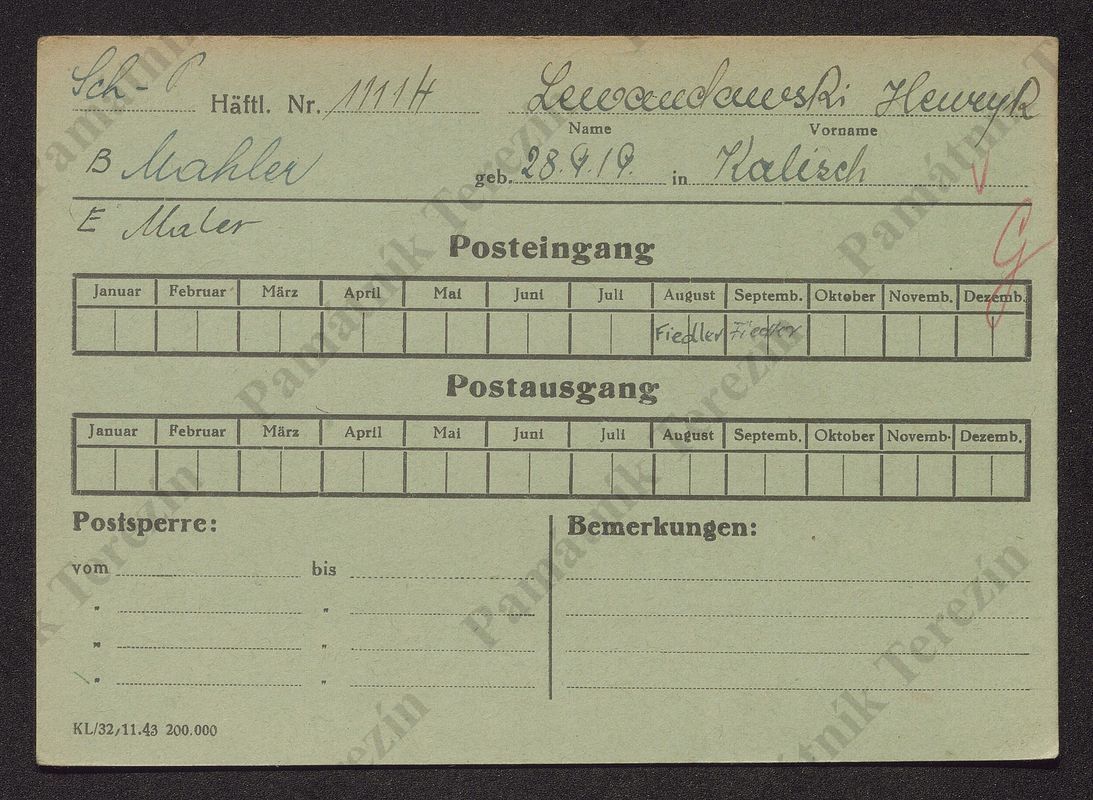 Sch - P Häftl. Nr. 11114 Lewandawski Henryk
Name Vorname
B Mahler geb. 28.9.19. in Kalisch
E Maler
G
Posteingang
Januar Februar März April Mai Juni Juli August Septemb. Oktober Novemb. Dezemb.
Fiedler Fiedler
Postausgang
Januar Februar März April Mai Juni Juli August Septemb. Oktober Novemb. Dezemb.
Postsperre: Bemerkungen:
vom bis
" "
" "
" "
KL/32/11.43 200.000
Památník Terezín
Památník Terezín
Památník Terezín
Památník Terezín
Památník Terezín